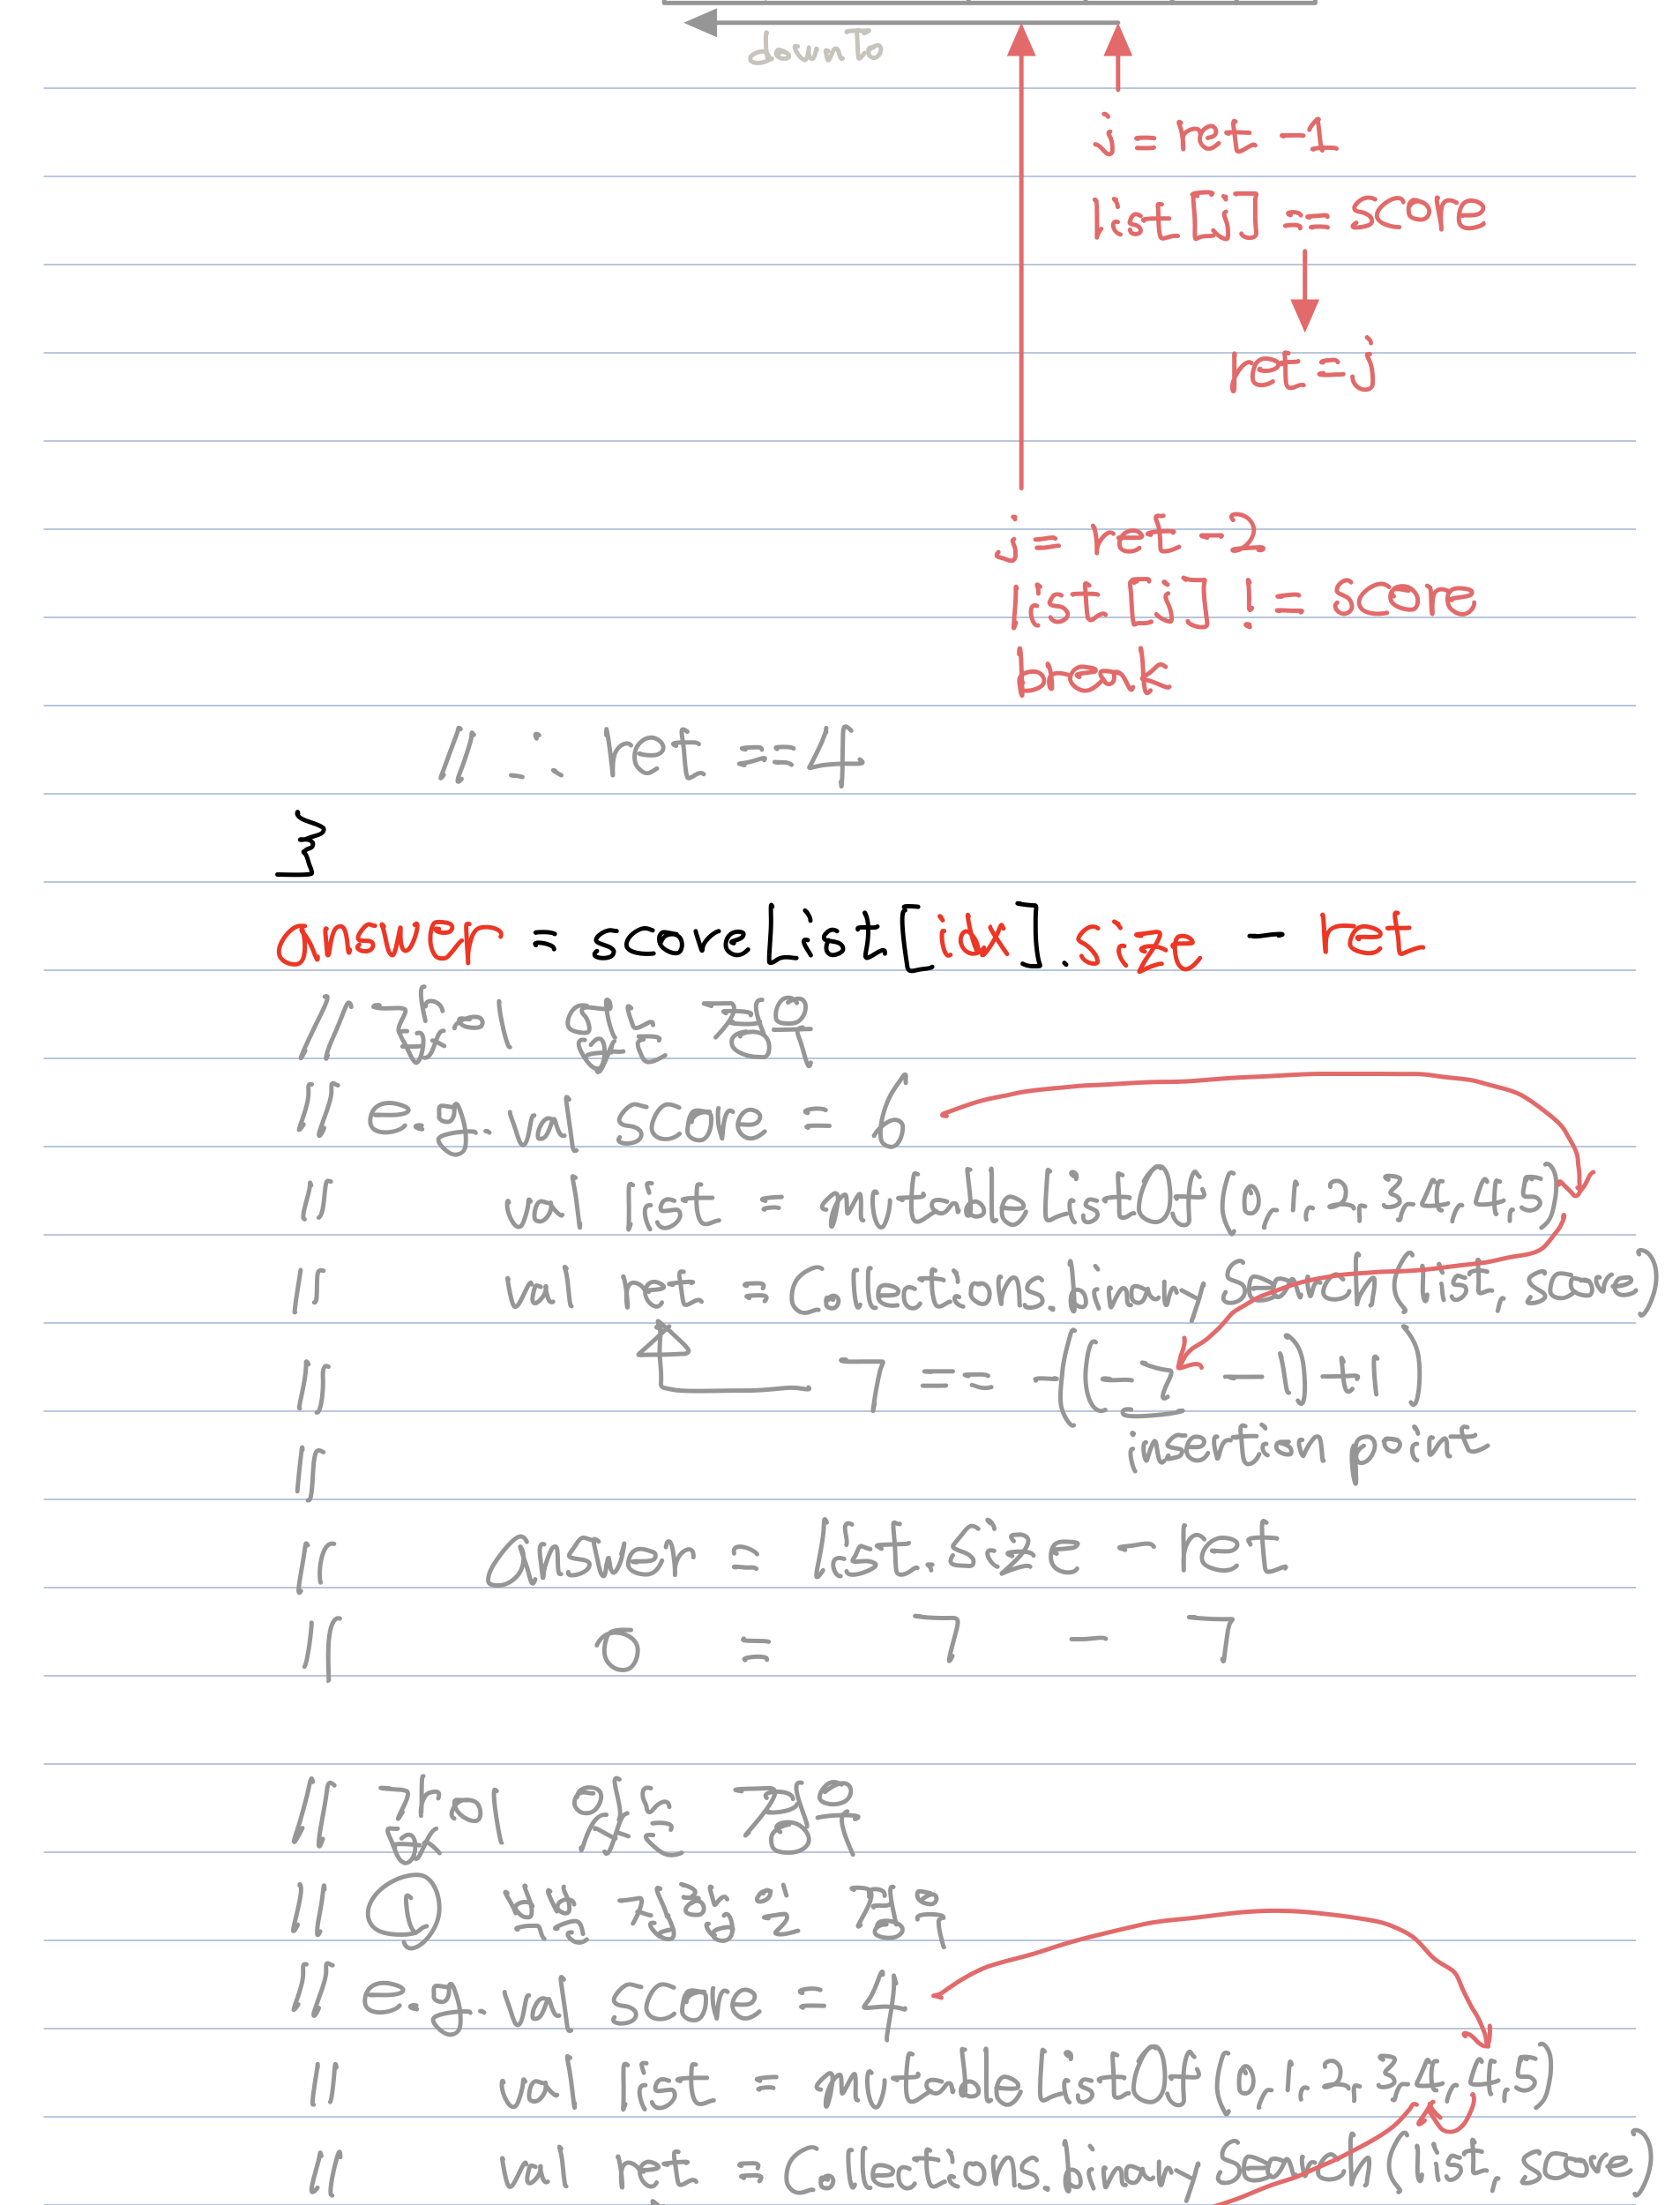 downTo
j = ret - 1
list[j] == score
ret = j
j = ret - 2
list[j] != score
break
// ∴ ret == 4
}
answer = scoreList[idx].size - ret
// 값이 없는 경우
// e.g. val score = 6
// val list = mutableListOf(0,1,2,3,4,4,5)
// val ret = Collections.binarySearch(list, score)
// 7 == -((-7 - 1) + 1)
insertion point
//
// answer = list.size - ret
// 0 = 7 - 7
// 값이 있는 경우
// ①
// e.g. val score = 4
// val list = mutableListOf(0,1,2,3,4,4,5)
// val ret = Collections.binarySearch(list, score)